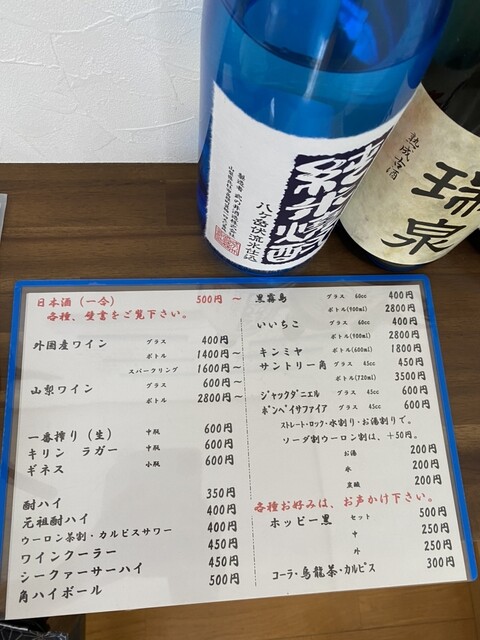 純米焼酎
八ヶ岳伏流水仕込
熟成古酒
瑞泉
日本酒（一合） 500円 〜
各種、壁書をご覧下さい。
外国産ワイン グラス 400円
ボトル 1400円〜
スパークリング 1600円〜
山梨ワイン グラス 600円〜
ボトル 2800円〜
一番搾り（生） 中瓶 600円
キリン ラガー 中瓶 600円
ギネス 小瓶 600円
酎ハイ 350円
元祖酎ハイ 400円
ウーロン茶割・カルピスサワー 400円
ワインクーラー 450円
シークァーサーハイ 450円
角ハイボール 500円
黒霧島 グラス 60cc 400円
ボトル(900ml) 2800円
いいちこ グラス 60cc 400円
ボトル(900ml) 2800円
キンミヤ ボトル(600ml) 1800円
サントリー角 グラス 45cc 450円
ボトル(720ml) 3500円
ジャックダニエル グラス 45cc 600円
ボンベイサファイア グラス 45cc 600円
ストレート・ロック・水割り・お湯割りで。
ソーダ割ウーロン割は、+50円。
お湯 200円
氷 200円
炭酸 200円
各種お好みは、お声かけ下さい。
ホッピー黒 セット 500円
中 250円
外 250円
コーラ・烏龍茶・カルピス 300円